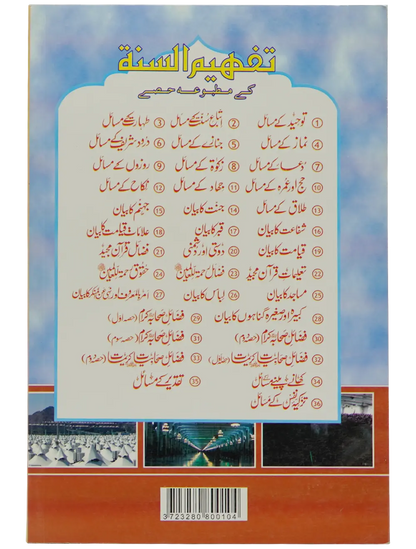 تفہیم السنۃ
کے مطبوعہ حصے
① توحید کے مسائل ② اتباع سنت کے مسائل ③ طہارت کے مسائل
④ نماز کے مسائل ⑤ جنازے کے مسائل ⑥ درود شریف کے مسائل
⑦ دعا کے مسائل ⑧ زکوٰۃ کے مسائل ⑨ روزوں کے مسائل
⑩ حج اور عمرہ کے مسائل ⑪ جہاد کے مسائل ⑫ نکاح کے مسائل
⑬ طلاق کے مسائل ⑭ جنت کا بیان ⑮ جہنم کا بیان
⑯ شفاعت کا بیان ⑰ قبر کا بیان ⑱ علامات قیامت کا بیان
⑲ قیامت کا بیان ⑳ دوستی اور دشمنی ㉑ فضائل قرآن مجید
㉒ تعلیمات قرآن مجید ㉓ فضائل رحمۃ للعالمین ㉔ حقوق رحمۃ للعالمین
㉕ مساجد کا بیان ㉖ لباس کا بیان ㉗ امر بالمعروف اور نہی عن المنکر کا بیان
㉘ کبیرہ اور صغیرہ گناہوں کا بیان ㉙ فضائل صحابہ کرام (حصہ اول)
㉚ فضائل صحابہ کرام (حصہ دوم) ㉛ فضائل صحابہ کرام (حصہ سوم)
㉜ فضائل صحابیات (حصہ اول) ㉝ فضائل صحابیات (حصہ دوم)
㉞ کھانے پینے کے مسائل ㉟ تقدیر کے مسائل
㊱ تزکیہ نفس کے مسائل
3723280 800104